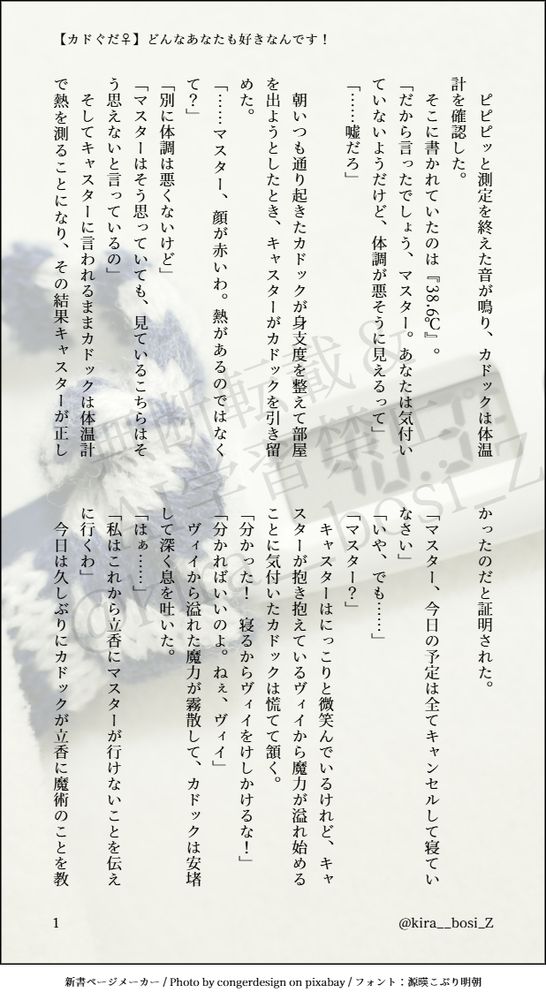 【カドぐだ♀】どんなあなたも好きなんです！
　ピピピッと測定を終えた音が鳴り、カドックは体温
計を確認した。
　そこに書かれていたのは『38.6℃』。
「だから言ったでしょう、マスター。あなたは気付い
ていないようだけど、体調が悪そうに見えるって」
「……嘘だろ」
　朝いつも通り起きたカドックが身支度を整えて部屋
を出ようとしたとき、キャスターがカドックを引き留
めた。
「……マスター、顔が赤いわ。熱があるのではなく
て？」
「別に体調は悪くないけど」
「マスターはそう思っていても、見ているこちらはそ
う思えないと言っているの」
　そしてキャスターに言われるままカドックは体温計
で熱を測ることになり、その結果キャスターが正し
かったのだと証明された。
「マスター、今日の予定は全てキャンセルして寝てい
なさい」
「いや、でも……」
「マスター？」
　キャスターはにっこりと微笑んでいるけれど、キャ
スターが抱き抱えているヴィイから魔力が溢れ始める
ことに気付いたカドックは慌てて頷く。
「分かった！　寝るからヴィイをけしかけるな！」
「分かればいいのよ。ねぇ、ヴィイ」
　ヴィイから溢れた魔力が霧散して、カドックは安堵
して深く息を吐いた。
「はぁ……」
「私はこれから立香にマスターが行けないことを伝え
に行くわ」
　今日は久しぶりにカドックが立香に魔術のことを教
無断転載&
AI学習禁止
@kira__bosi_Z
1
@kira__bosi_Z
新書ページメーカー / Photo by congerdesign on pixabay / フォント：源暎こぶり明朝